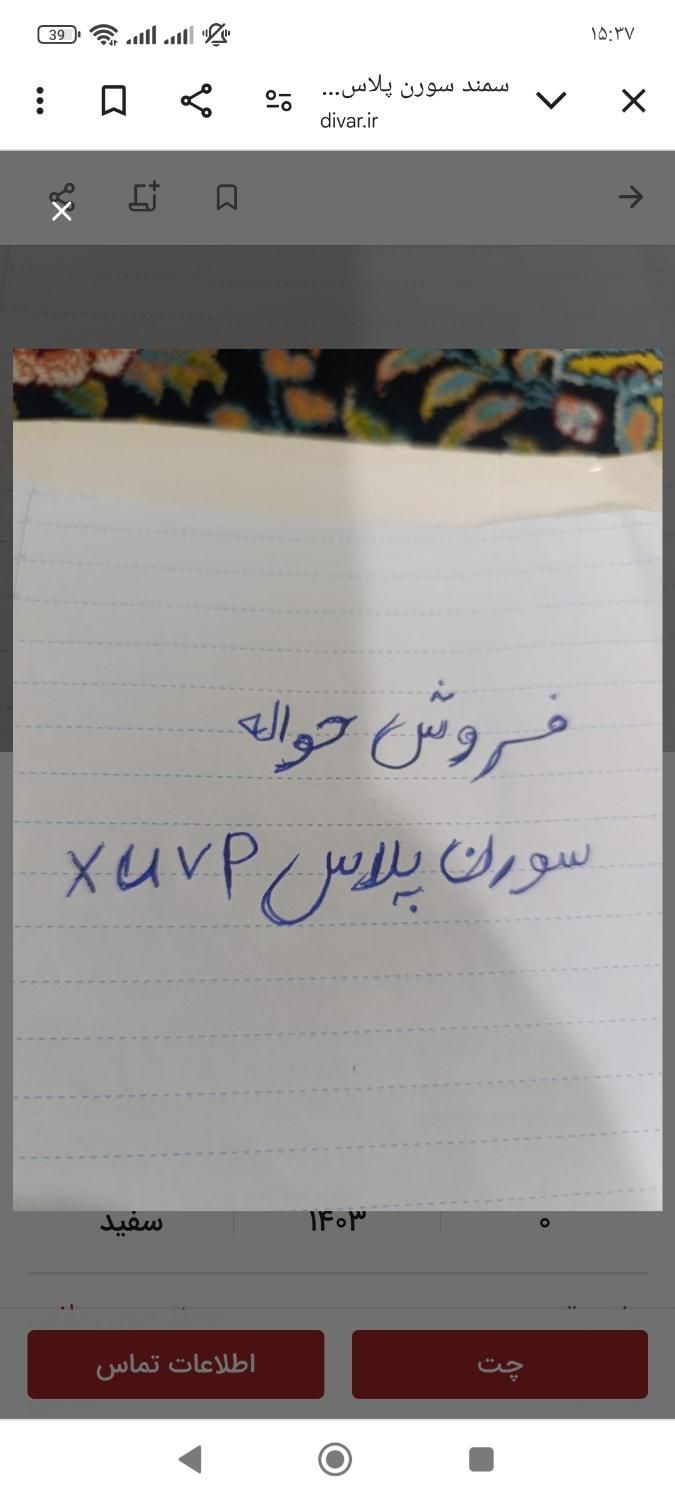 39
۱۵:۳۷
سمند سورن پلاس...
divar.ir
فروش حواله
سورن پلاس XU7P
۰
۱۴۰۳
سفید
چت
اطلاعات تماس